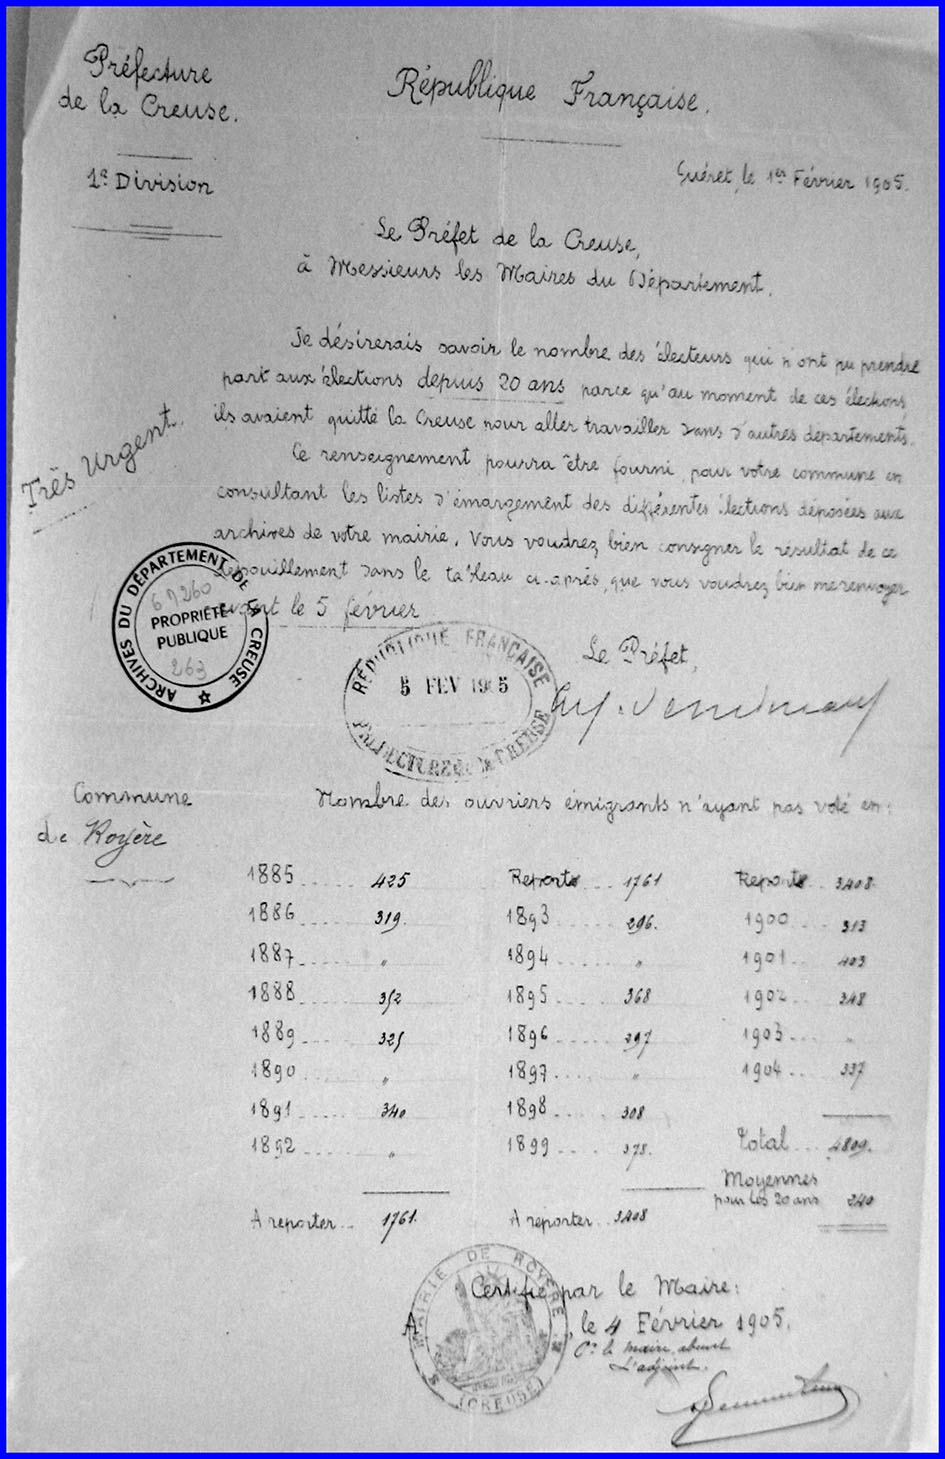 Préfecture
de la Creuse.
République Française.
1e Division
Guéret, le 1er Février 1905.
Le Préfet de la Creuse,
à Messieurs les Maires du Département.
Je désirerais savoir le nombre des électeurs qui n'ont pu prendre
part aux élections depuis 20 ans parce qu'au moment de ces élections
ils avaient quitté la Creuse pour aller travailler dans d'autres départements.
Très Urgent.
Ce renseignement pourra être fourni pour votre commune en
consultant les listes d'émargement des différentes élections déposées aux
archives de votre mairie. Vous voudrez bien consigner le résultat de ce
dépouillement dans le tableau ci-après, que vous voudrez bien me renvoyer
avant le 5 février
ARCHIVES DU DÉPARTEMENT DE LA CREUSE
PROPRIÉTÉ
PUBLIQUE
263
Le Préfet,
RÉPUBLIQUE FRANÇAISE
5 FEV 1905
PRÉFECTURE de la CREUSE
Commune
de Royère
Nombre des ouvriers émigrants n'ayant pas voté en:
1885 ..... 425 Reports ... 1761 Reports .. 3408
1886 ..... 319. 1893 ..... 296. 1900 .... 313
1887 ..... " 1894 ..... " 1901 ... 403
1888 ..... 352 1895 ..... 368 1902 .... 348
1889 ..... 325 1896 ..... 297 1903 .... "
1890 ..... " 1897 ..... " 1904 ... 337
1891 ..... 340 1898 ..... 308
1892 ..... " 1899 .... 378. Total ... 4809.
Moyennes
pour les 20 ans 240
A reporter .. 1761. A reporter .. 3408
MAIRIE DE ROYÈRE
(CREUSE)
Certifié par le Maire:
A , le 4 Février 1905.
Pr le maire absent
L'adjoint.